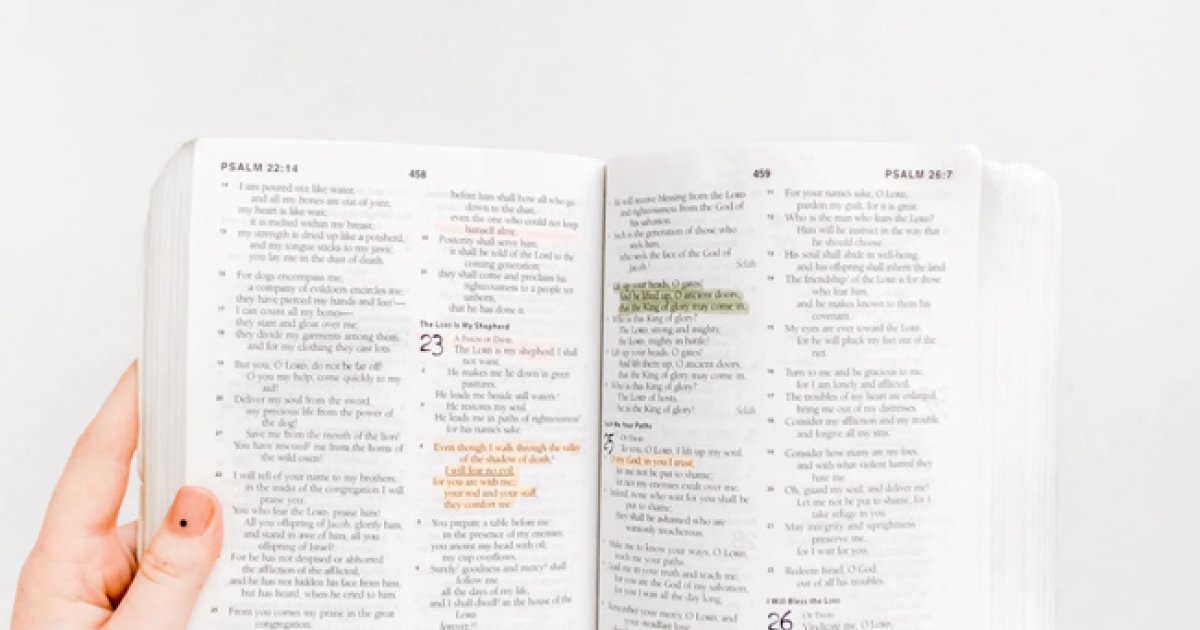 PSALM 22:14
458
14 I am poured out like water,
and all my bones are out of joint;
my heart is like wax;
it is melted within my breast;
15 my strength is dried up like a potsherd,
and my tongue sticks to my jaws;
you lay me in the dust of death.
16 For dogs encompass me;
a company of evildoers encircles me;
they have pierced my hands and feet—
17 I can count all my bones—
they stare and gloat over me;
18 they divide my garments among them,
and for my clothing they cast lots.
19 But you, O LORD, do not be far off!
O you my help, come quickly to my
aid!
20 Deliver my soul from the sword,
my precious life from the power of
the dog!
21 Save me from the mouth of the lion!
You have rescued me from the horns of
the wild oxen!
22 I will tell of your name to my brothers;
in the midst of the congregation I will
praise you:
You who fear the LORD, praise him!
All you offspring of Jacob, glorify him,
and stand in awe of him, all you
offspring of Israel!
For he has not despised or abhorred
the affliction of the afflicted,
and he has not hidden his face from him,
but has heard, when he cried to him.
25 From you comes my praise in the great
congregation;
before him shall bow all who go
down to the dust,
even the one who could not keep
himself alive.
30 Posterity shall serve him;
it shall be told of the Lord to the
coming generation;
31 they shall come and proclaim his
righteousness to a people yet
unborn,
that he has done it.
The LORD Is My Shepherd
23 A PSALM OF DAVID.
The LORD is my shepherd; I shall
not want.
2 He makes me lie down in green
pastures.
He leads me beside still waters.
3 He restores my soul.
He leads me in paths of righteousness
for his name's sake.
4 Even though I walk through the valley
of the shadow of death,
I will fear no evil,
for you are with me;
your rod and your staff,
they comfort me.
5 You prepare a table before me
in the presence of my enemies;
you anoint my head with oil;
my cup overflows.
6 Surely goodness and mercy shall
follow me
all the days of my life,
and I shall dwell in the house of the
LORD
forever.
459
PSALM 26:7
will receive blessing from the LORD
and righteousness from the God of
his salvation.
Such is the generation of those who
seek him,
who seek the face of the God of
Jacob. Selah
Lift up your heads, O gates!
And be lifted up, O ancient doors,
that the King of glory may come in.
Who is this King of glory?
The LORD, strong and mighty,
the LORD, mighty in battle!
Lift up your heads, O gates!
And lift them up, O ancient doors,
that the King of glory may come in.
Who is this King of glory?
The LORD of hosts,
he is the King of glory! Selah
Me Your Paths
25 OF DAVID.
To you, O LORD, I lift up my soul.
O my God, in you I trust;
let me not be put to shame;
let not my enemies exult over me.
Indeed, none who wait for you shall be
put to shame;
they shall be ashamed who are
wantonly treacherous.
Make me to know your ways, O LORD;
teach me your paths.
Lead me in your truth and teach me,
for you are the God of my salvation;
for you I wait all the day long.
Remember your mercy, O LORD, and
your steadfast love,
11 For your name's sake, O LORD,
pardon my guilt, for it is great.
12 Who is the man who fears the LORD?
Him will he instruct in the way that
he should choose.
13 His soul shall abide in well-being,
and his offspring shall inherit the land.
14 The friendship of the LORD is for those
who fear him,
and he makes known to them his
covenant.
15 My eyes are ever toward the LORD,
for he will pluck my feet out of the
net.
16 Turn to me and be gracious to me,
for I am lonely and afflicted.
17 The troubles of my heart are enlarged;
bring me out of my distresses.
18 Consider my affliction and my trouble,
and forgive all my sins.
19 Consider how many are my foes,
and with what violent hatred they
hate me.
20 Oh, guard my soul, and deliver me!
Let me not be put to shame, for I
take refuge in you.
21 May integrity and uprightness
preserve me,
for I wait for you.
22 Redeem Israel, O God,
out of all his troubles.
I Will Bless the LORD
26 OF DAVID.
Vindicate me, O LORD,